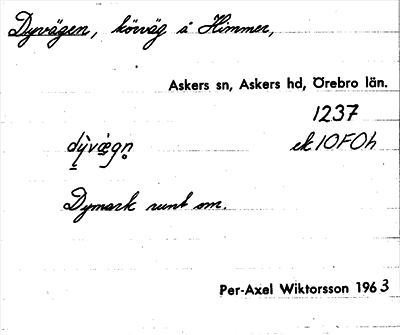 Dyvägen, körväg å Himmer,
Askers sn, Askers hd, Örebro län.
1237
dỳvæ̀gn̥ ek 10F0h
Dymark runt om.
Per-Axel Wiktorsson 1963